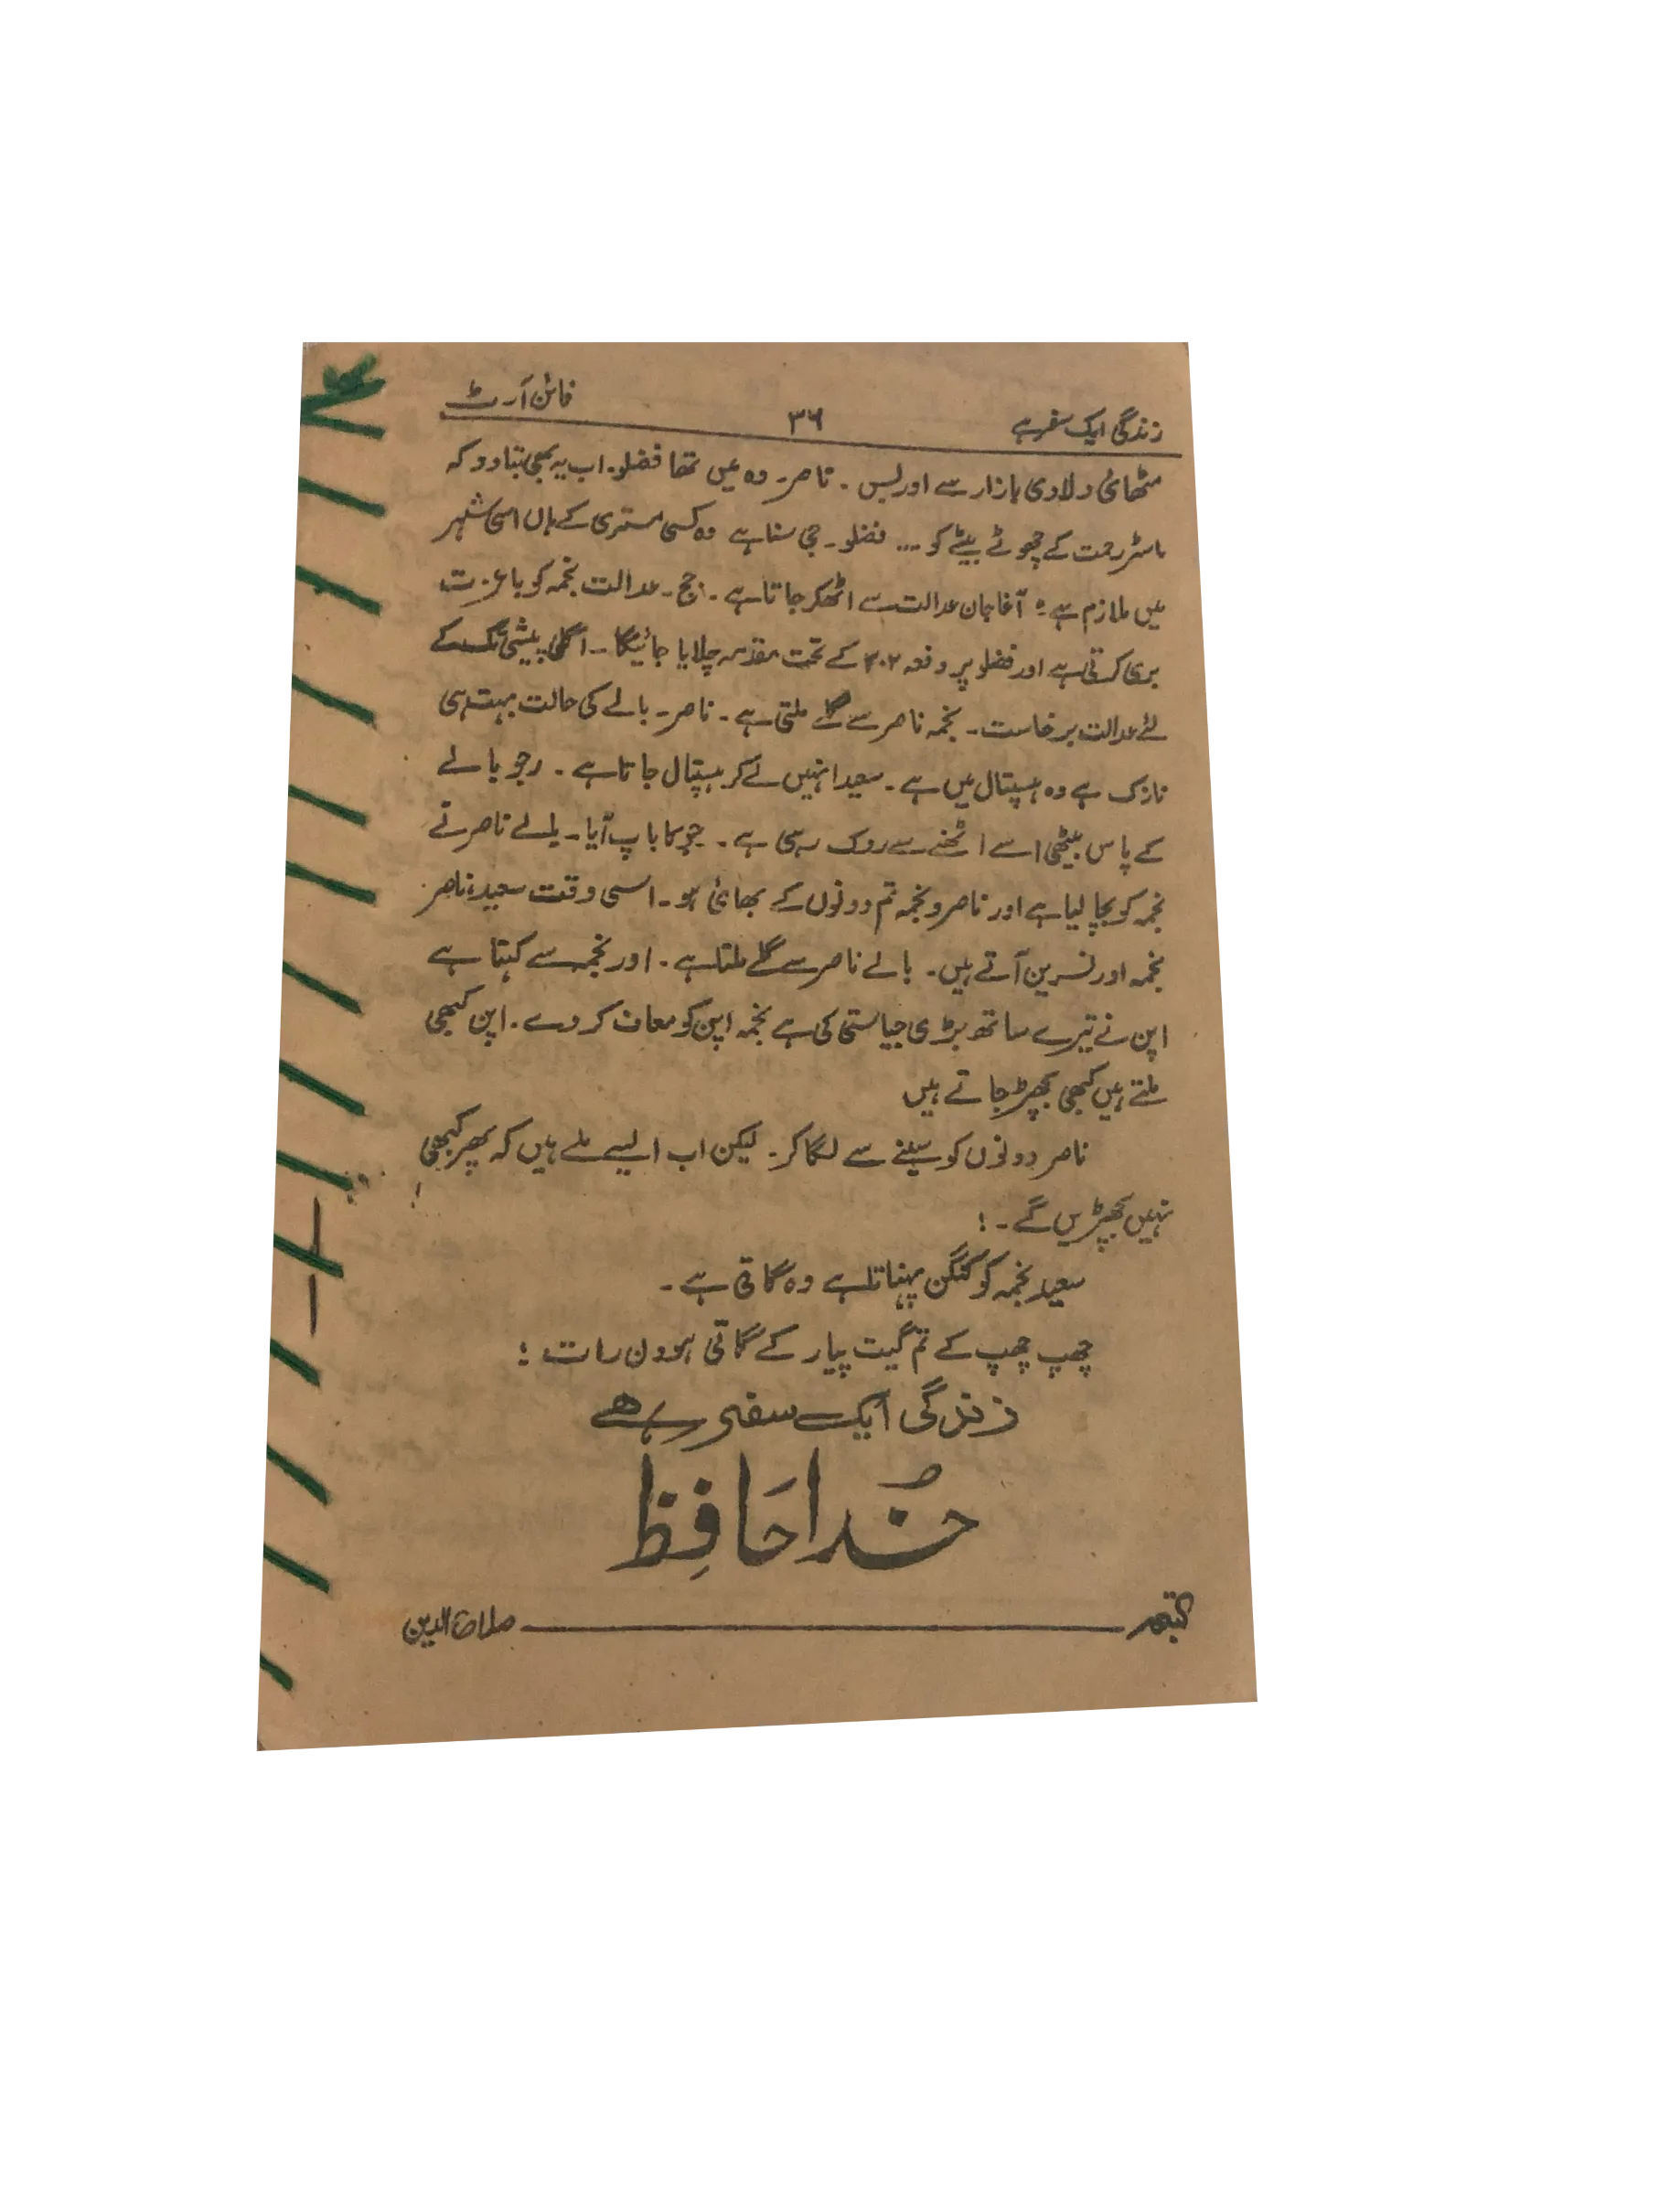 زندگی ایک سفر ہے ۳۶ فائن آرٹ
مٹھائی دلادی بازار سے اور بس ۔ ناصر۔ وہ میں تھا فضلو۔ اب یہ بھی بتا دو کہ
ماسٹر رحمت کے چھوٹے بیٹے کو ... فضلو۔ جی سنا ہے وہ کسی مستری کے ہاں اسی شہر
میں ملازم ہے ؛ آغا جان عدالت سے اٹھکر جاتا ہے ۔ جج ۔ عدالت نجمہ کو باعزت
بری کرتی ہے اور فضلو پر دفعہ ۳۰۲ کے تحت مقدمہ چلایا جائیگا ۔ اگلی پیشی تک کے
لئے عدالت برخاست ۔ نجمہ ناصر سے گلے ملتی ہے ۔ ناصر۔ بالے کی حالت بہت ہی
نازک ہے وہ ہسپتال میں ہے ۔ سعید انہیں لے کر ہسپتال جاتا ہے ۔ رجو بالے
کے پاس بیٹھی اسے اٹھنے سے روک رہی ہے ۔ جو کا باپ آیا ۔ بالے ناصر نے
نجمہ کو بچا لیا ہے اور ناصر و نجمہ تم دونوں کے بھائی ہو ۔ اسی وقت سعید، ناصر
نجمہ اور نسرین آتے ہیں ۔ بالے ناصر سے گلے ملتا ہے ۔ اور نجمہ سے کہتا ہے
اپن نے تیرے ساتھ بڑی جیاستی کی ہے نجمہ اپن کو معاف کر دے ۔ اپن کبھی
ملتے ہیں کبھی بچھڑ جاتے ہیں
ناصر دونوں کو سینے سے لگا کر ۔ لیکن اب ایسے ملے ہیں کہ پھر کبھی
نہیں بچھڑیں گے ۔ !
سعید نجمہ کو کنگن پہناتا ہے وہ گاتی ہے ۔
چھپ چھپ کے تم گیت پیار کے گاتی ہو دن رات :
زندگی ایک سفر ہے
خُدا حَافِظ
کتبہ صلاح الدین